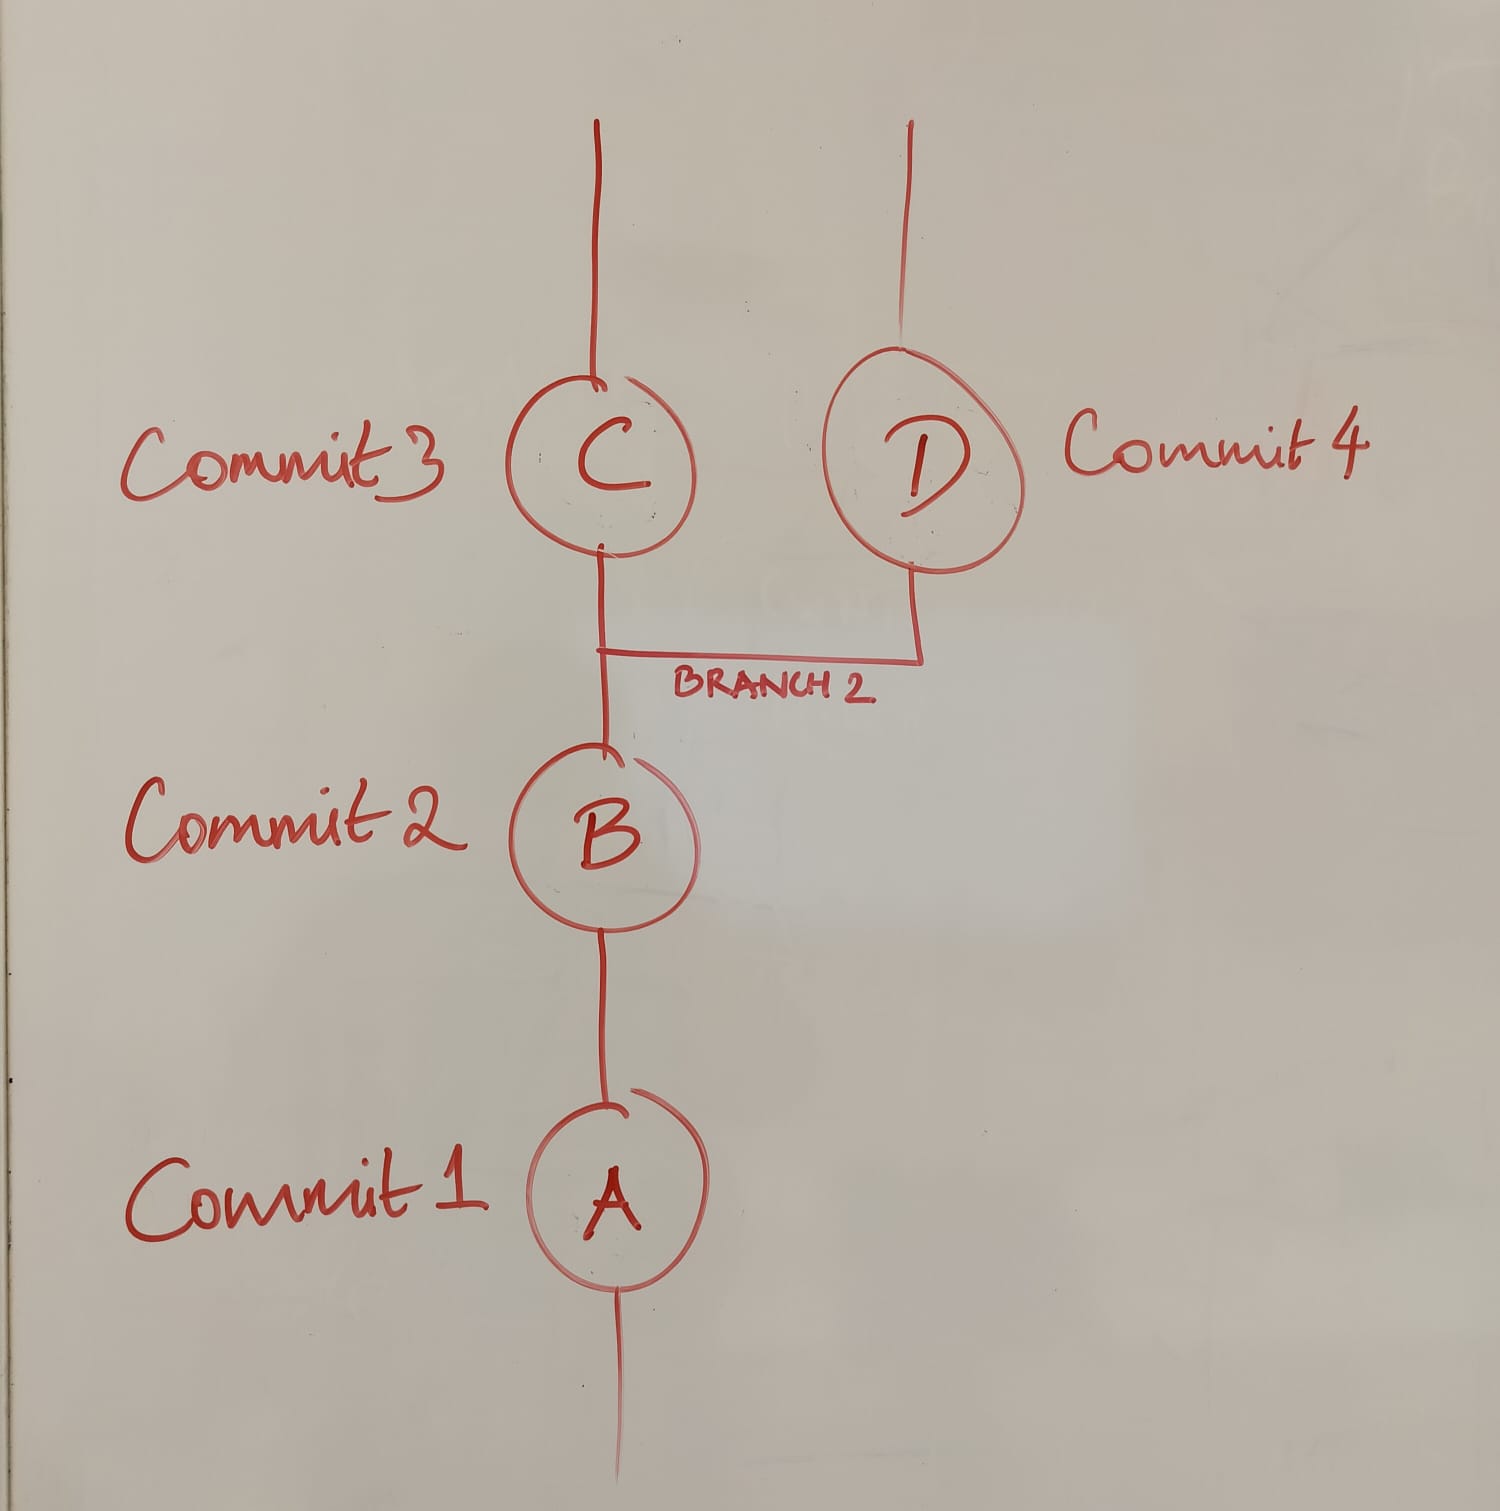 Commit 3
C
D
Commit 4
BRANCH 2
Commit 2
B
Commit 1
A